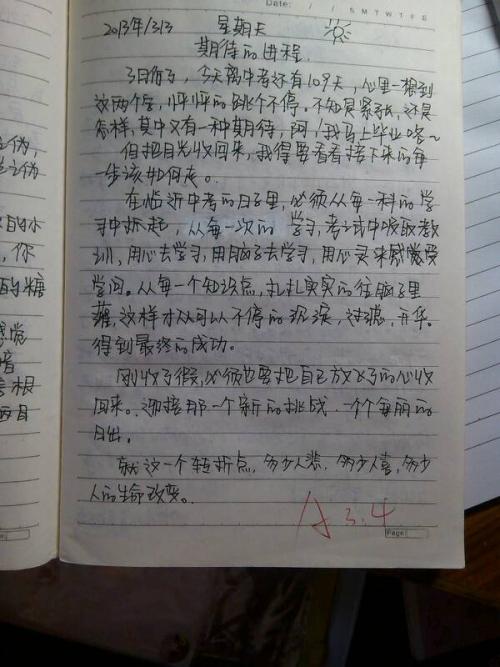 Date: / / S M T W T F S
2013年/3/3 星期天
期待的进程.
3月份了,今天离中考还有109天,心里一想到
这两个字,怦怦的跳个不停。不知是紧张,还是
怎样,其中又有一种期待,阿,我马上毕业咯~
但把目光收回来,我得要看看接下来的每
一步该如何走。
在临近中考的日子里,必须从每一科的学
习中抓起,从每一次的 学习,考试中吸取教
训,用心去学习,用脑子去学习,用心灵来感觉受
学问。从每一个知识点,扎扎实实的往脑子里
藏,这样才从可以不停的沉淀,过滤,升华。
得到最终的成功。
刚收了假,必须也要把自己放飞了的心收
回来。迎接那一个新的挑战,一个个每丽的
日出。
就这一个转折点,多少人悲,多少人喜,多少
人的生命改变。
A 3.4
Page:
伪,
之伪
的水
,你
的糖
感觉
根
西目